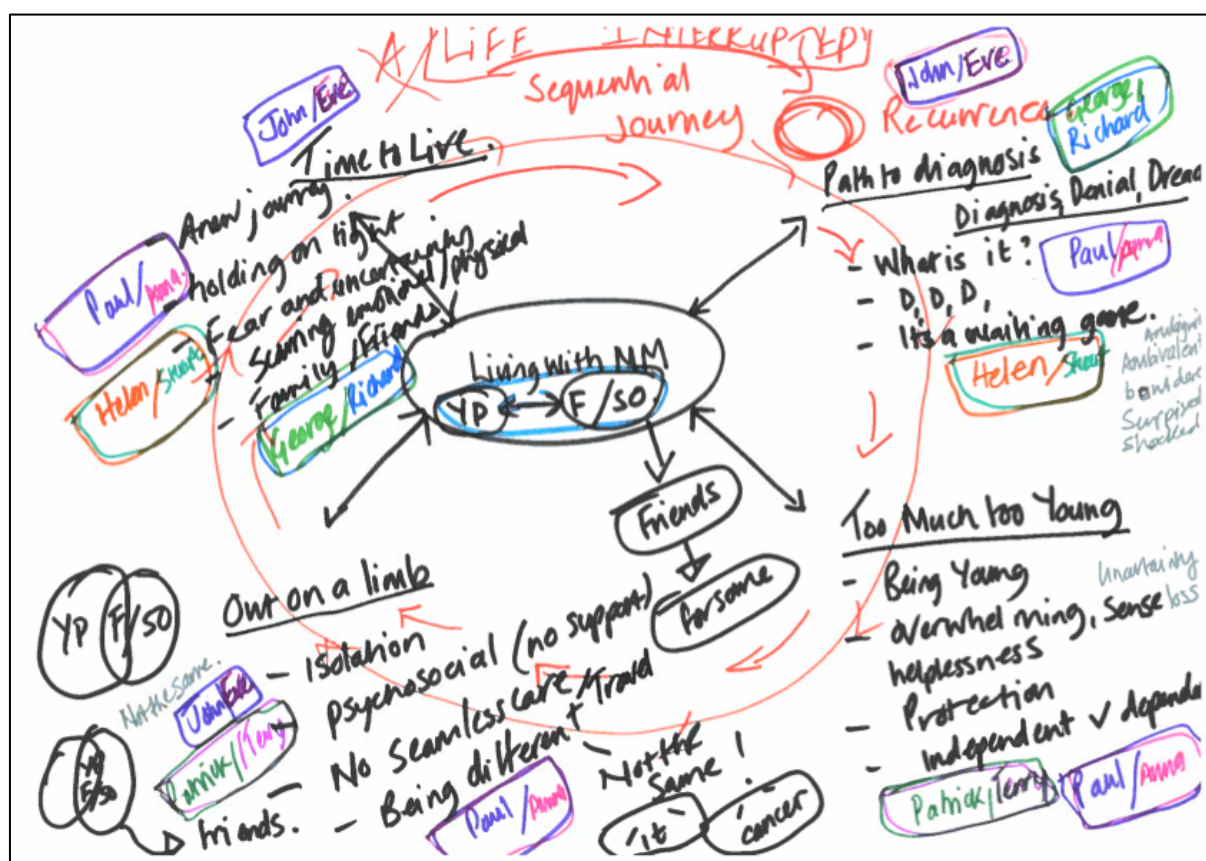 A LIFE INTERRUPTED
Sequential
journey
Recurrence
John/Eve
John/Eve
George/
Richard
Time to Live.
A new journey.
- holding on tight
- Fear and uncertainty
- Scarring emotional/physical
- Family/Friends
Paul/Anna.
Helen/Stuart
George/Richard
Path to diagnosis
Diagnosis, Denial, Dread
- What is it?
- D, D, D,
- It's a waiting game.
Paul/Anna
Helen/Stuart
Ambivalent
Surprised
shocked
Living with NM
YP
F/SO
Friends
for some
Too Much too Young
- Being Young
- overwhelming, sense
helplessness
- Protection
- Independent v depend
Uncertainty
loss
Patrick/Terry
Paul/Anna
Out on a limb
- Isolation
psychosocial (no support)
- No seamless care/Travel
- Being different
YP
F/SO
Not the same.
John/Eve
Patrick/Terry
YP
F/SO
friends.
Paul/Anna
- Not the
Same!
'it'
cancer